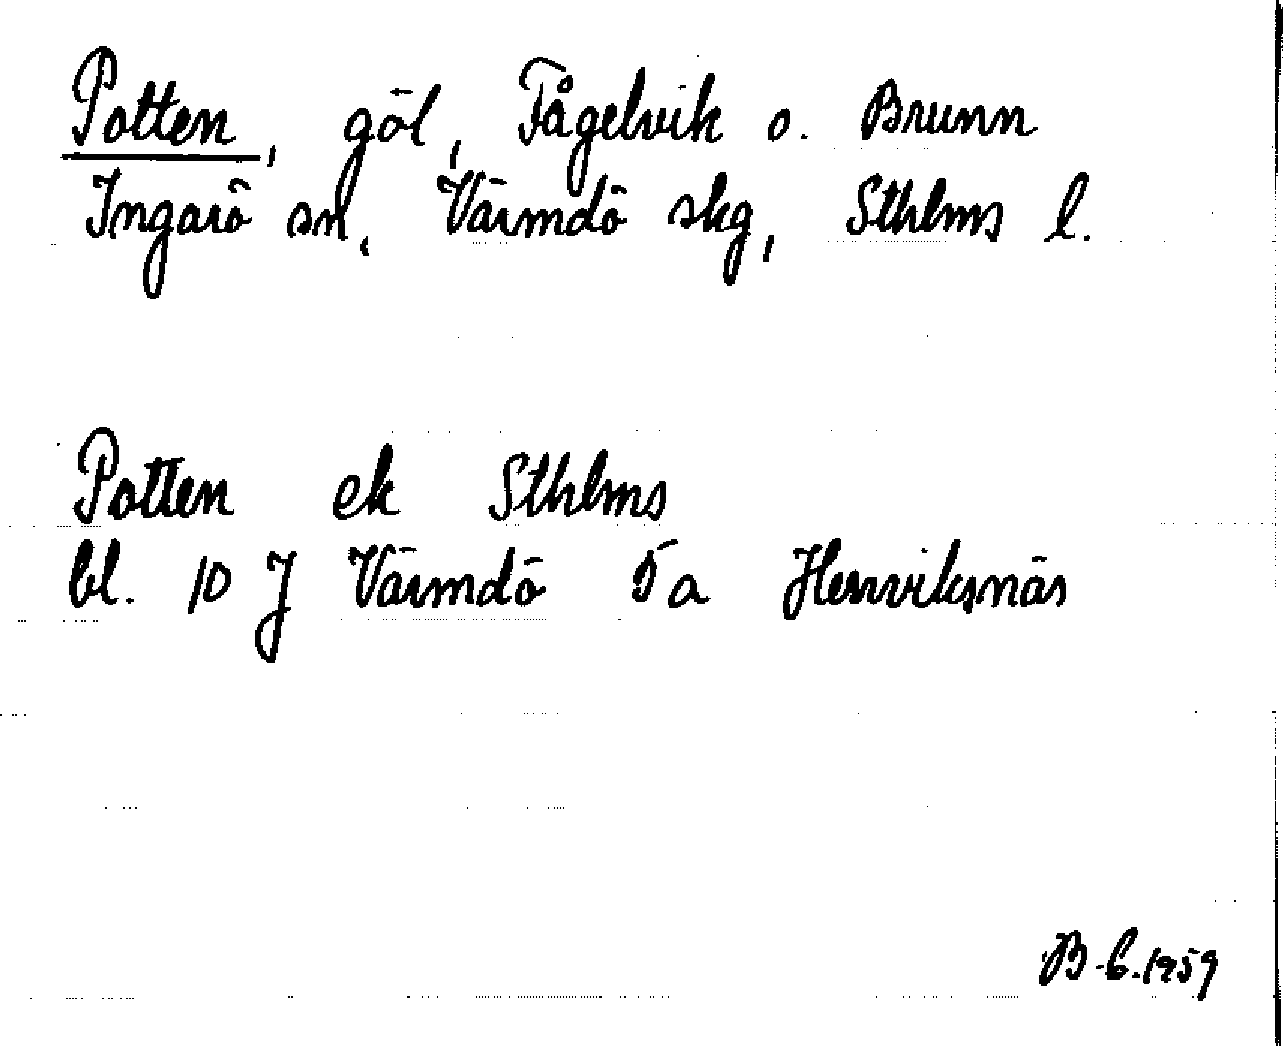 Potten, göl, Fågelvik o. Brunn
Ingarö sn, Värmdö skg, Sthlms l.
Potten ek Sthlms
bl. 10 J Värmdö 5a Herrviksnäs
B-6.1959